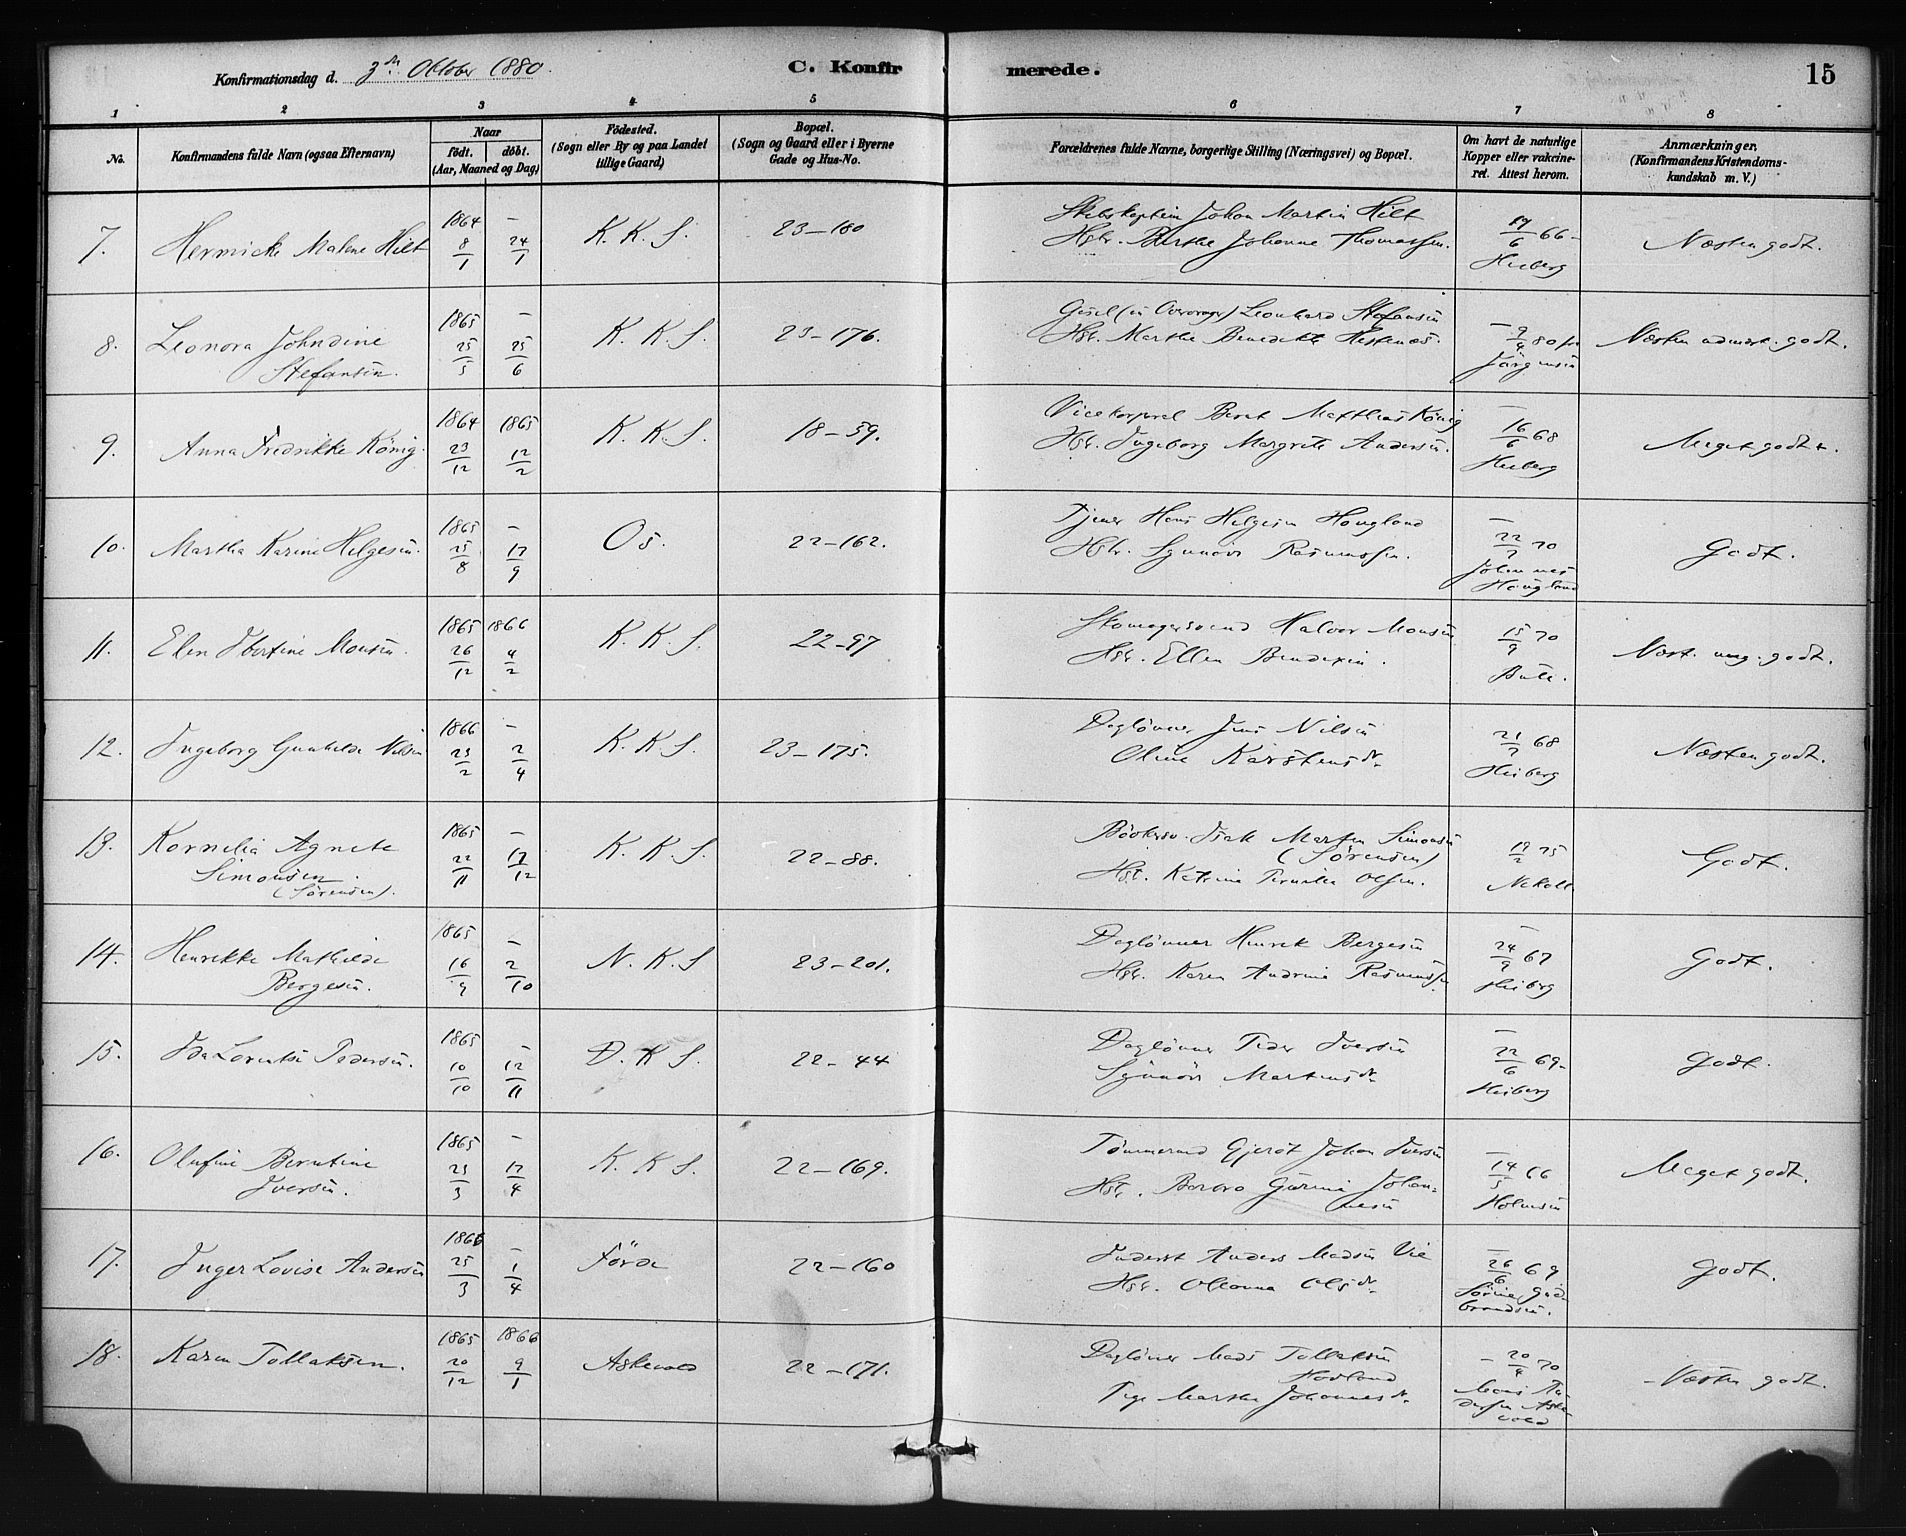 Konfirmationsdag d. 3die Oktober 1880.
C. Konfir merede.
15
1 2 3 4 5 6 7 8
No.
Konfirmandens fulde Navn (ogsaa Efternavn)
Naar
födt. döbt.
(Aar, Maaned og Dag)
Födested.
(Sogn eller By og paa Landet
tillige Gaard)
Bopæl.
(Sogn og Gaard eller i Byerne
Gade og Hus-No.
Forældrenes fulde Navne, borgerlige Stilling (Næringsvei) og Bopæl.
Om havt de naturlige
Kopper eller vakcine-
ret. Attest herom.
Anmærkninger.
(Konfirmandens Kristendoms-
kundskab m. V.)
7. Hermicke Malene Hilt
1864 8/1 – 24/1
K. K. S.
23–180
Skibskaptein Johan Martin Hilt
Hstr. Berthe Johanne Thomassen.
19/6 66–
Heiberg
Næsten godt.
8. Leonora Johndine
Stefansen.
1865 25/5 – 25/6
K. K. S.
23–176.
Leonhard Stefansen
Hst. Marthe Benedikte Hestenæs.
– 9/4 80 fra
Jörgensen
Næsten udmærk. godt.
9. Anna Fredrikke König.
1864 23/12 1865 12/2
K. K. S.
18–59.
Vicekorporal Bernt Matthias König
Hst. Ingeborg Margrete Andersen.
– 16/6 68
Heiberg
Meget godt +.
10. Martha Karine Helgesen.
1865 25/8 – 17/9
Os.
22–162.
Tjener Hans Helgesen Hougland
Hstr. Synnöve Rasmussen.
– 22/7 70
Johannes
Hougland
Godt.
11. Elen Ibertine Monsen.
1865 26/12 1866 4/2
K. K. S.
22–97
Skomagersvend Halvor Monsen
Hst. Ellen Bendixen.
15/9 70
Bull.
Næst. meg. godt.
12. Ingeborg Gunhilde Nilsen
1866 23/2 – 2/4
K. K. S.
23–175.
Daglönner Jens Nilsen
Oline Karstensdr.
21/7 68
Heiberg
Næsten godt.
13. Kornelia Agnete
Simonsen.
(Sörensen).
1865 22/11 – 17/12
K. K. S.
22–88.
Bödkersv. Isak Martin Simonsen
(Sörensen)
Hst. Katrine Pernille Olsen.
19/2 75
Godt.
14. Henrikke Mathilde
Bergesen.
1865 16/9 – 2/10
N. K. S
23–201.
Daglönner Henrik Bergesen
Hst. Karen Andrine Rasmussen.
– 24/9 67
Heiberg
Godt.
15. Ida Lorentse Pedersen.
1865 10/10 – 12/11
D. K. S.
22–44
Daglönner Peder Iversen
Synnöve Martensdr.
– 22/6 69–
Heiberg
Godt.
16. Olufine Berntine
Iversen.
1865 23/3 – 17/4
K. K. S.
22–169.
Tömmermd Gjeröt Johan Iversen
Hst. Barbro Gurine Johan-
nesen
– 14/5 66
Holmsen
Meget godt.
17. Inger Lovise Andersen
1866 25/3 – 1/4
Förde
22–160
Inderst Anders Madsen Vie
Hst. Oleanna Olsdr.
– 26/6 69
Sörine Gud-
brandsen.
Godt.
18. Karen Tollaksen.
1865 20/12 1866 9/1
Askevold
22–171.
Daglönner Mads Tollaksen
Hodland
Pige Marthe Johannesdr.
– 20/4 70
Askevold
Næsten godt.